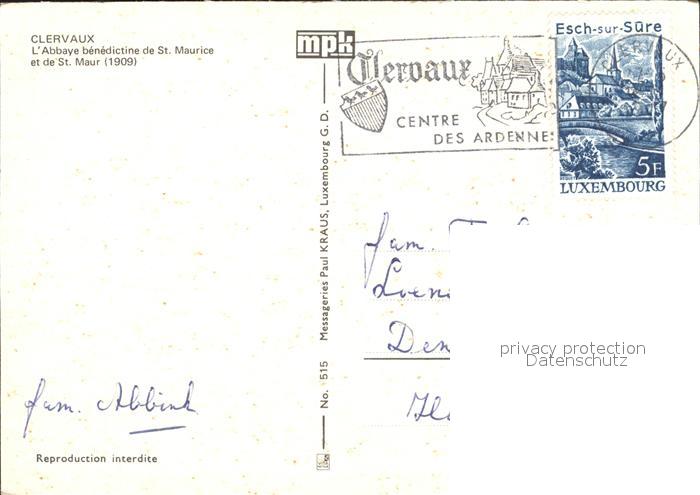 CLERVAUX
L'Abbaye bénédictine de St. Maurice
et de St. Maur (1909)
mpk
Clervaux
CENTRE
DES ARDENNES
Esch-sur-Sûre
5F
LUXEMBOURG
CLERVAUX
No. 515 Messageries Paul KRAUS, Luxembourg G. D.
fam.
Loen
Den
privacy protection
Datenschutz
fam. Abbink
Reproduction interdite